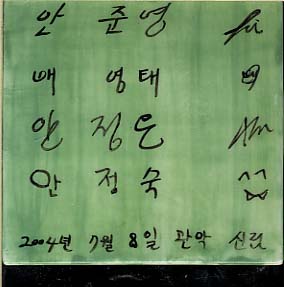 안 준영
배 영태
안 정은
안 정숙
2004년 7월 8일 관악 신림